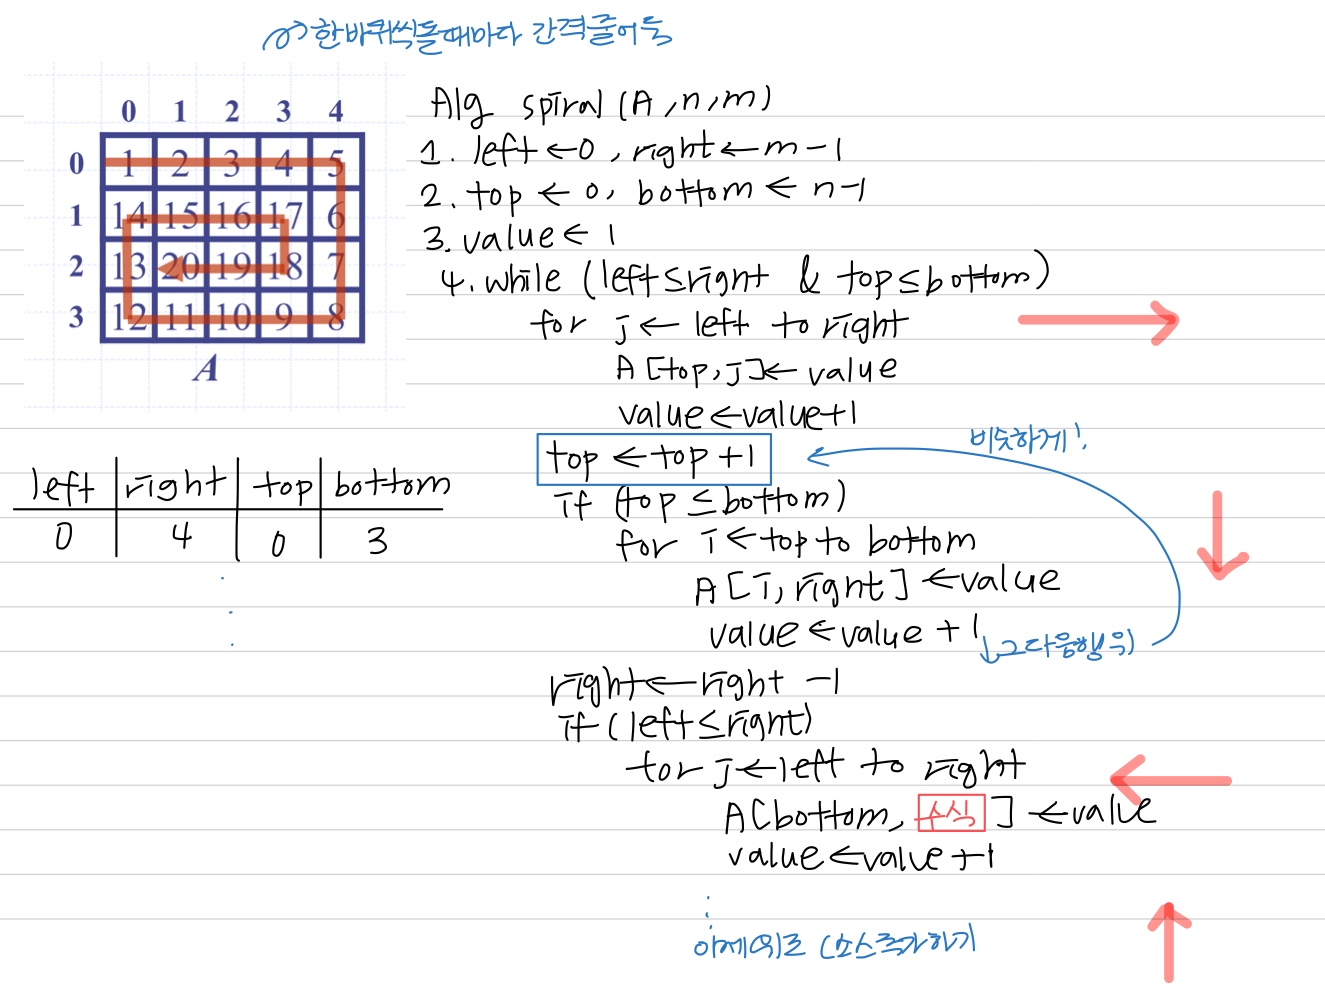 한바퀴씩돌때마다 간격줄어듦
0 1 2 3 4
0 1 2 3 4 5
1 14 15 16 17 6
2 13 20 19 18 7
3 12 11 10 9 8
A
Alg spiral (A, n, m)
1. left ← 0, right ← m-1
2. top ← 0, bottom ← n-1
3. value ← 1
4. while (left ≤ right & top ≤ bottom)
for j ← left to right
A[top, j] ← value
value ← value+1
top ← top +1
비슷하게!
if (top ≤ bottom)
for i ← top to bottom
A[i, right] ← value
value ← value +1
↓그다음행위
right ← right -1
if (left ≤ right)
for j ← left to right
A[bottom, 수식] ← value
value ← value +1
left right top bottom
0 4 0 3